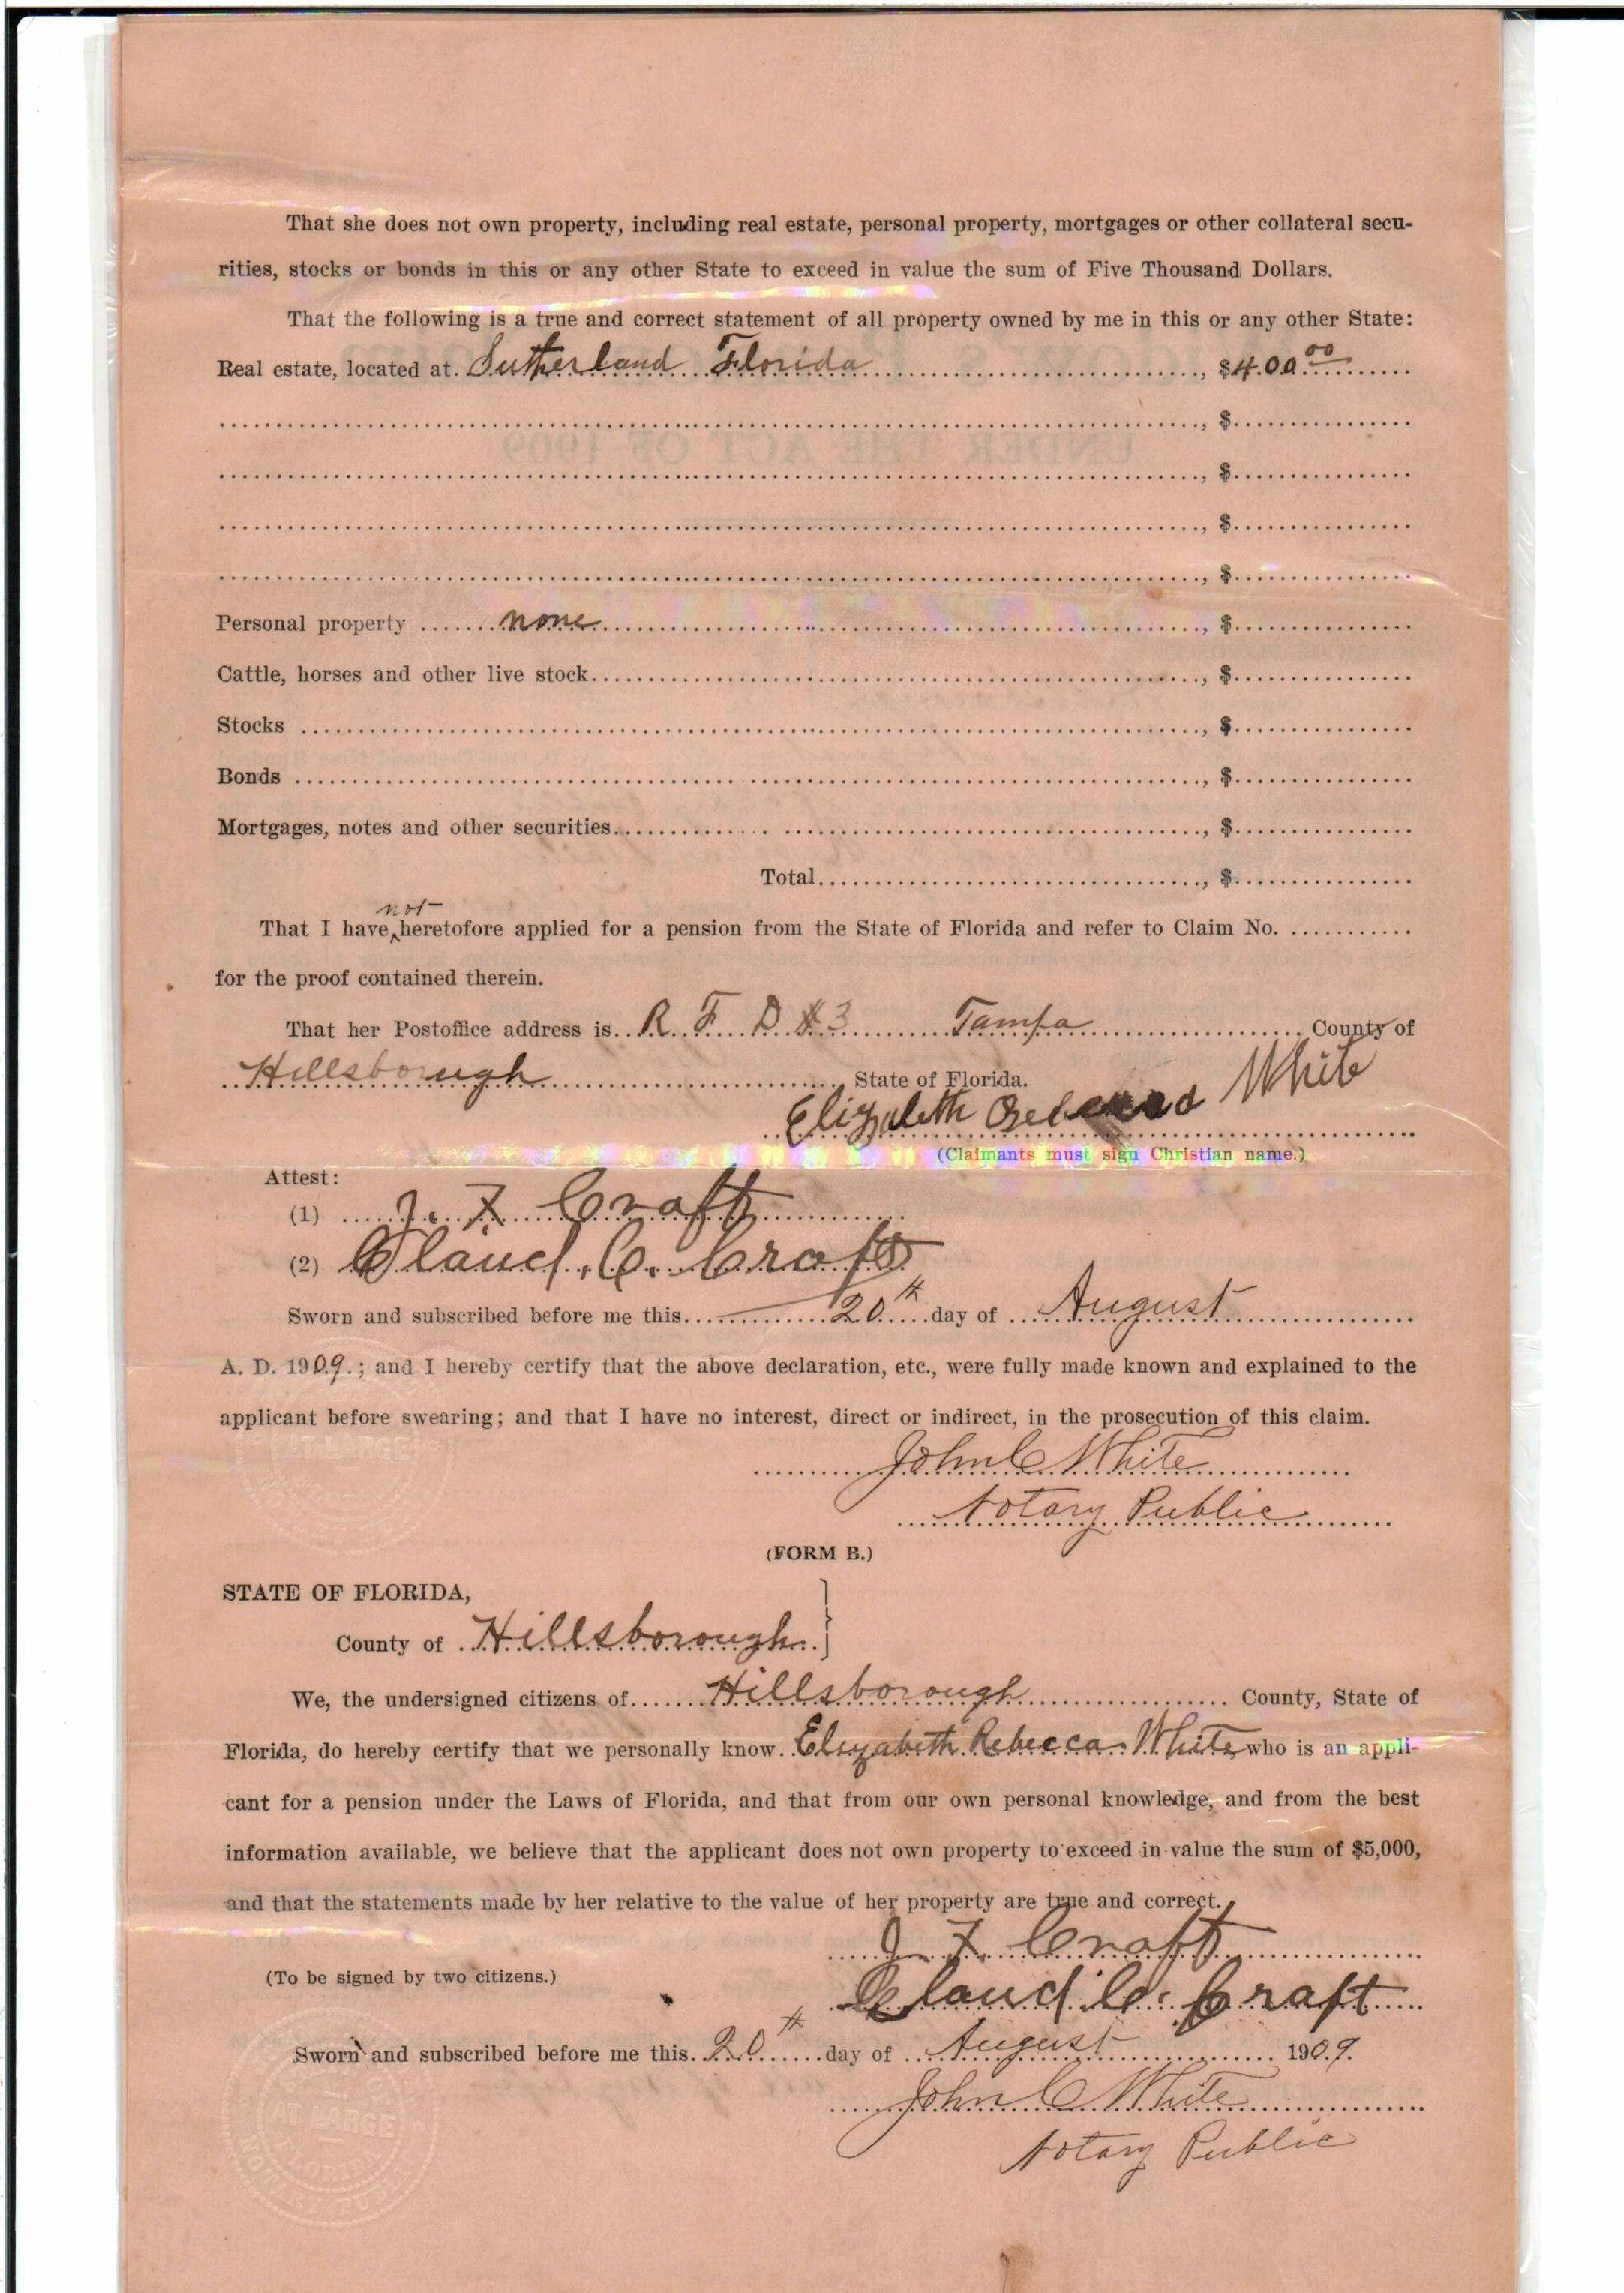 That she does not own property, including real estate, personal property, mortgages or other collateral secu-
rities, stocks or bonds in this or any other State to exceed in value the sum of Five Thousand Dollars.
That the following is a true and correct statement of all property owned by me in this or any other State:
Real estate, located at. Sutherland Florida , $400.00
UNDER THE ACT OF 1909
, $
, $
, $
, $
Personal property none , $
Cattle, horses and other live stock , $
Stocks , $
Bonds , $
Mortgages, notes and other securities , $
Total , $
not
That I have ‸ heretofore applied for a pension from the State of Florida and refer to Claim No.
for the proof contained therein.
That her Postoffice address is R. F. D #3 Tampa County of
Hillsborough State of Florida.
Elizabeth Rebecca White
(Claimants must sign Christian name.)
Attest:
(1) J. F. Craft
(2) Claud. C. Craft
Sworn and subscribed before me this 20th day of August
A. D. 1909.; and I hereby certify that the above declaration, etc., were fully made known and explained to the
applicant before swearing; and that I have no interest, direct or indirect, in the prosecution of this claim.
John C White
Notary Public
(FORM B.)
STATE OF FLORIDA,
County of Hillsborough }
We, the undersigned citizens of Hillsborough County, State of
Florida, do hereby certify that we personally know Elizabeth Rebecca White who is an appli-
cant for a pension under the Laws of Florida, and that from our own personal knowledge, and from the best
information available, we believe that the applicant does not own property to exceed in value the sum of $5,000,
and that the statements made by her relative to the value of her property are true and correct.
J. F. Craft
(To be signed by two citizens.)
Claud C. Craft
Sworn and subscribed before me this 20th day of August 1909.
John C White
Notary Public